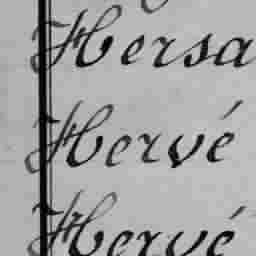 Hersa
Hervé
Hervé